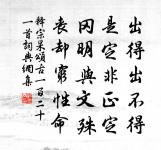 出得出不得
是定非正定
罔明與文殊
喪却窮性命
釋宗杲頌古一百二十
一首詞典網集